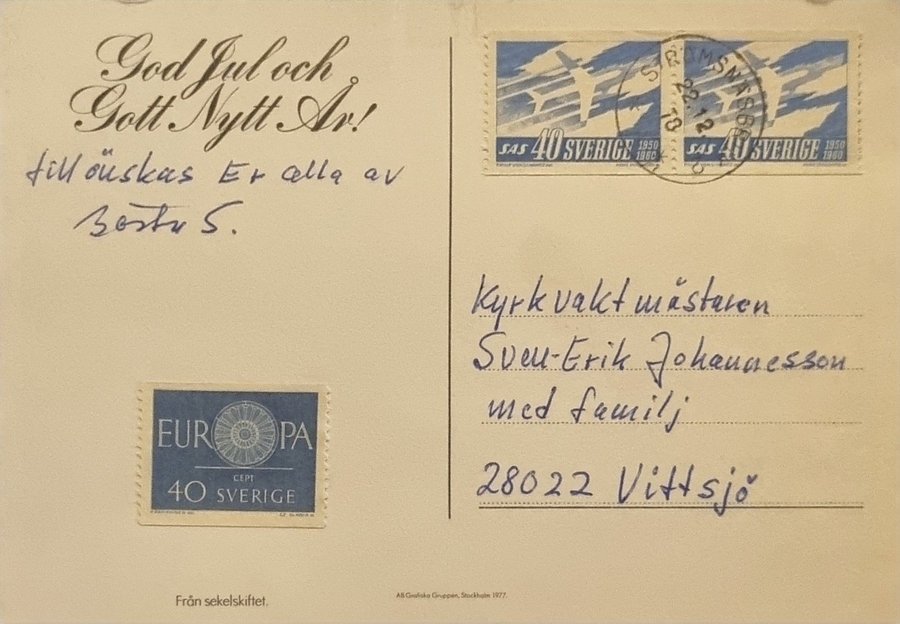 God Jul och
Gott Nytt År!
tillönskas Er alla av
S.
SAS 40 SVERIGE 1950 1960
SAS 40 SVERIGE 1950 1960
STRÖMSNÄSBR
22.12
78
Kyrkvaktmästaren
Sven-Erik Johannesson
med familj
28022 Vittsjö
EUROPA
CEPT
40 SVERIGE
Från sekelskiftet.
AB Grafiska Gruppen, Stockholm 1977.